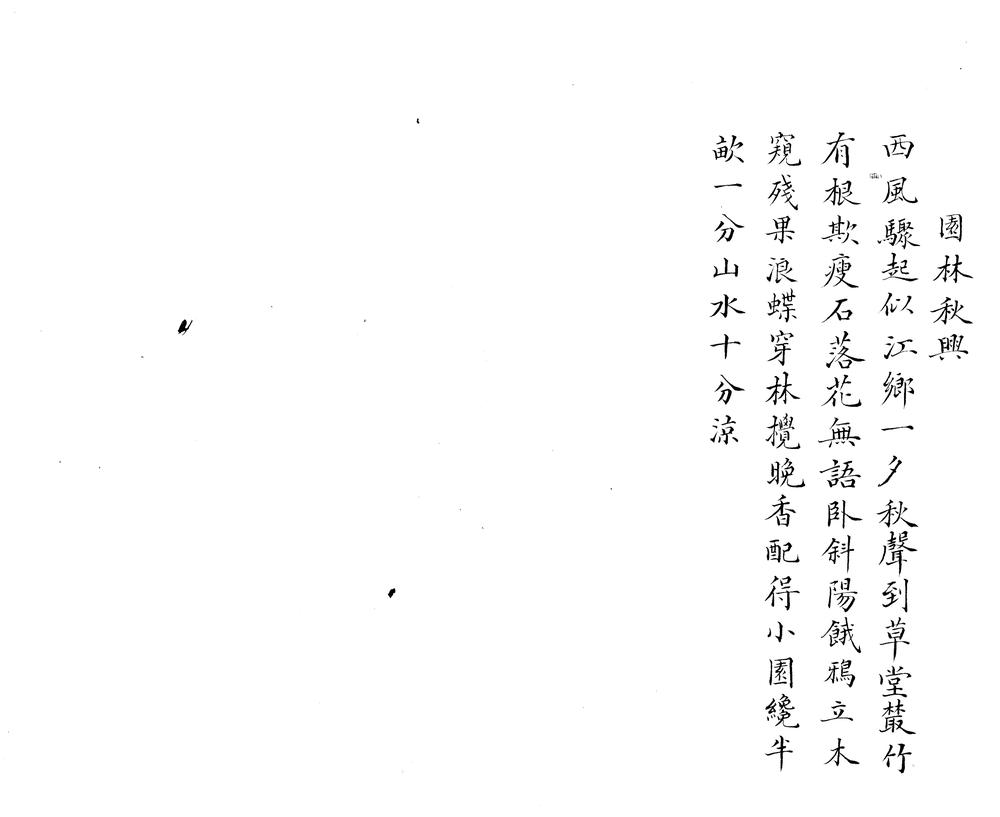 園林秋興
西風驟起似江鄉一夕秋聲到草堂叢竹
有根欺瘦石落花無語卧斜陽餓鴉立木
窺殘果浪蝶穿林攪晚香配得小園纔半
畝一分山水十分涼